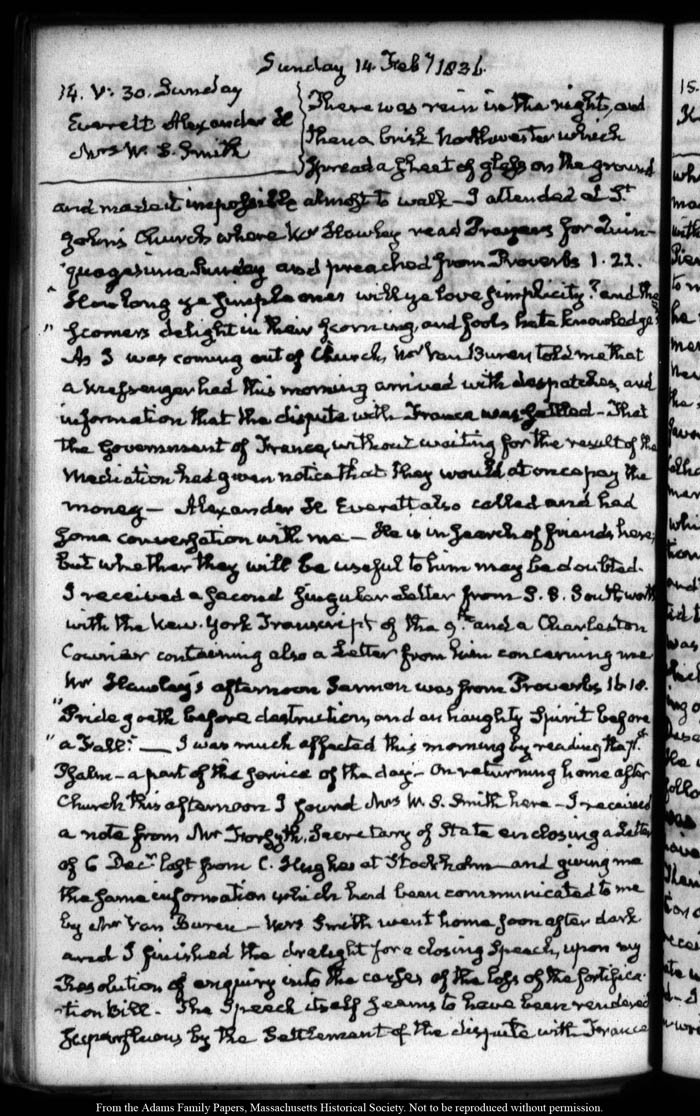 Sunday 14. Feby 1836.
14. V: 30. Sunday
Everett Alexander H
Mrs W. S. Smith
There was rain in the night, and
then a brisk Northwester which
spread a sheet of glass on the ground
and made it impossible almost to walk – I attended at St
John's Church where Mr Hawley read Prayers for Quin-
quagesima Sunday and preached from Proverbs 1. 22.
"How long ye simple ones will ye love simplicity? and the
"scorners delight in their scorning, and fools hate knowledge?
As I was coming out of Church, Mr Van Buren told me that
a Messenger had this morning arrived with despatches, and
information that the dispute with France was settled – That
the Government of France, without waiting for the result of the
Mediation had given notice that they would at once pay the
money – Alexander H Everett also called and had
some conversation with me – He is in search of friends here,
but whether they will be useful to him may be doubted.
I received a second singular Letter from S. L. Southworth
with the New-York Transcript of the 9th and a Charleston
Courier containing also a Letter from him concerning me
Mr Hawley's afternoon Sermon was from Proverbs 16. 18.
"Pride goeth before destruction, and an haughty Spirit before
"a Fall." – I was much affected this morning by reading the 71st
Psalm – a part of the service of the day – On returning home after
Church this afternoon I found Mrs W. S. Smith here – I received
a note from Mr Forsyth, Secretary of State enclosing a Letter
of 6 Decr last from C. Hughes at Stockholm – and giving me
the same information which had been communicated to me
by Mr Van Buren – Mrs Smith went home soon after dark
and I finished the draught for a closing Speech, upon my
Resolution of enquiry into the causes of the loss of the fortifica-
tion bill – The Speech itself seems to have been rendered
superfluous by the Settlement of the dispute with France
15.
From the Adams Family Papers, Massachusetts Historical Society. Not to be reproduced without permission.